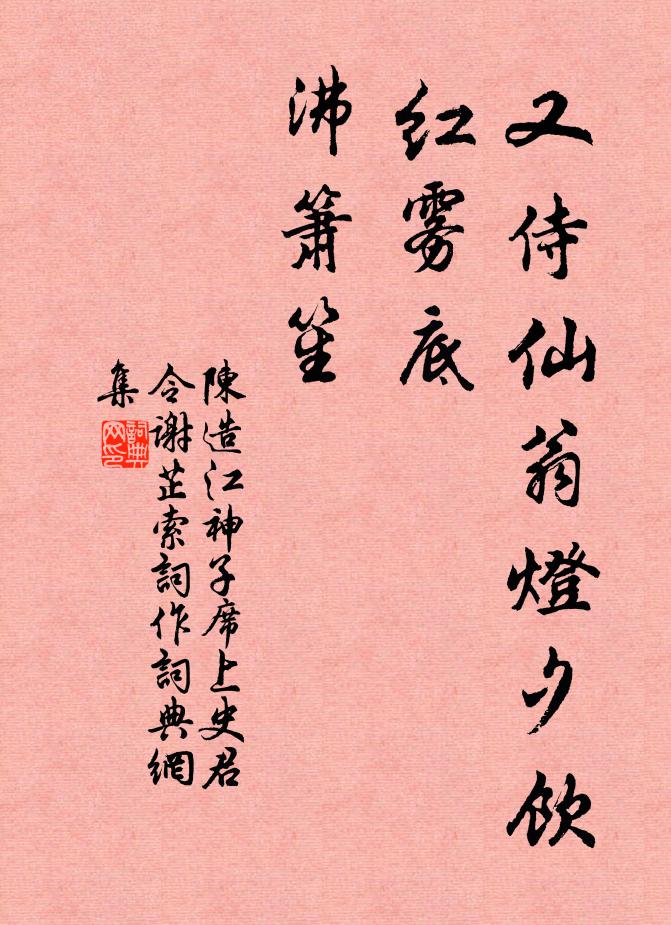 又侍仙翁燈夕飲
红雾底
沸簫笙
陳造江神子席上史君
令谢芷索詞作詞典網
集
詞典
网印